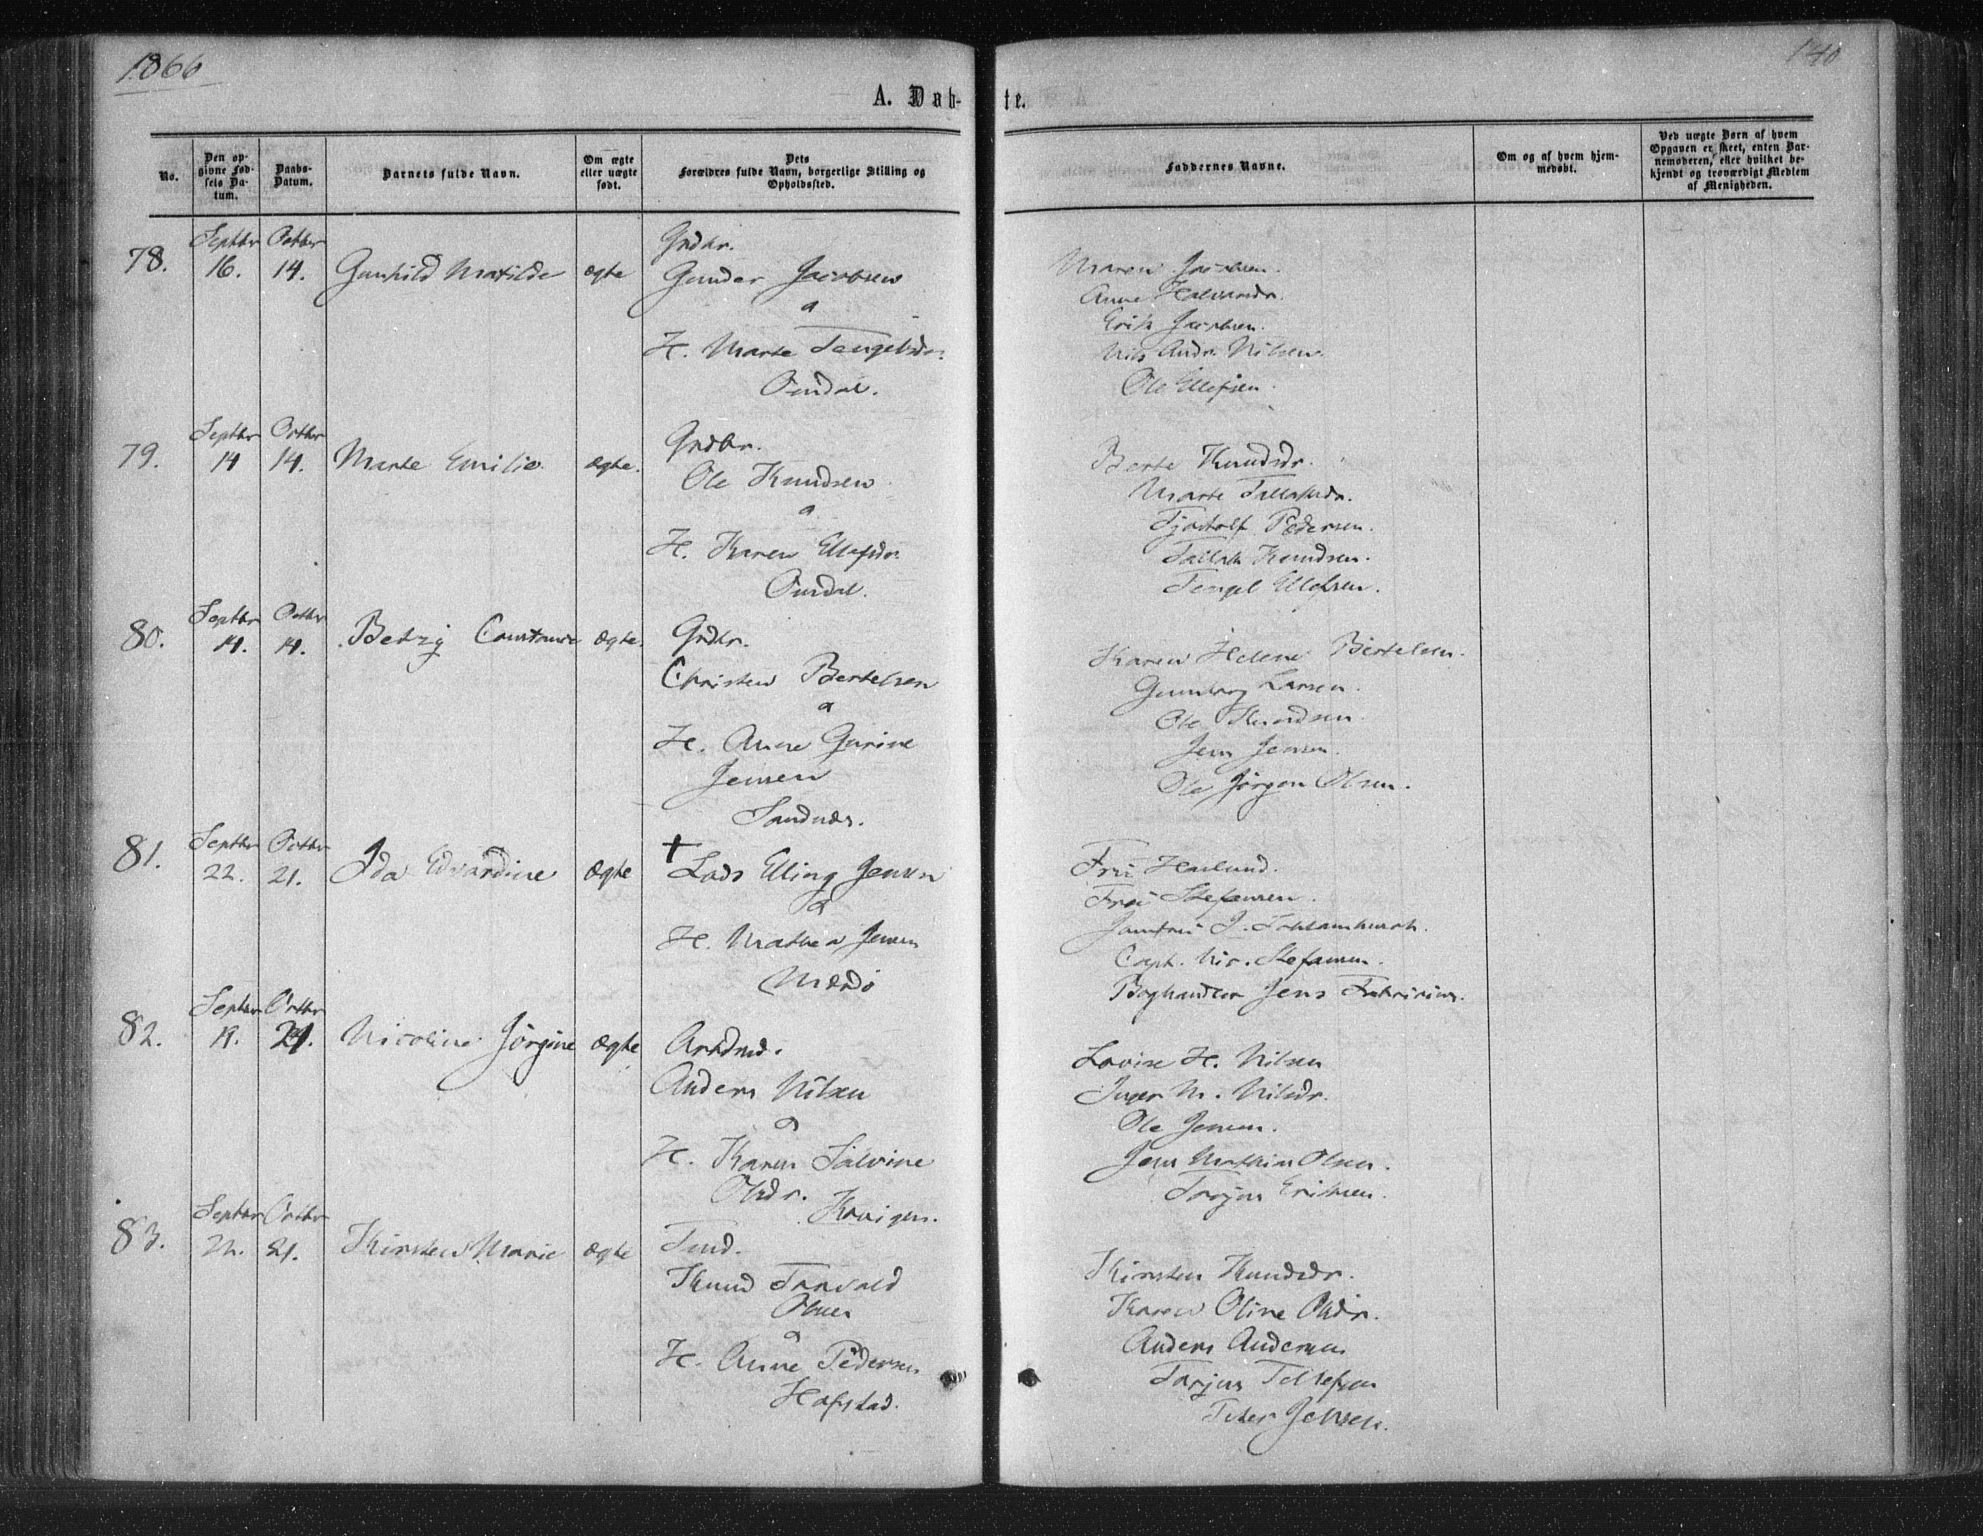 1866
140
A. Døb-
te.
No.
Den op-
givne Fød-
sels Da-
tum.
Daabs-
Datum.
Barnets fulde Navn.
Om ægte
eller uægte
født.
Dets
Forældres fulde Navn, borgerlige Stilling og
Opholdssted.
Faddernes Navne.
Om og af hvem hjem-
medøbt.
Ved uægte Børn af hvem
Opgaven er skeet, enten Bar-
nemoderen, eller hvilket be-
kjendt og troværdigt Medlem
af Menigheden.
78.
Septbr
16.
Octbr
14.
Gunhild Matilde
ægte
Grdbr.
Gunder Jacobsen
&
H. Marte Tengelsdr.
Omdal.
Maren Jacobsen.
Anne Halvorsdr.
Erik Jacobsen.
Nils Andr. Nilsen.
Ole Ellefsen.
79.
Septbr
14
Octbr
14.
Marte Emilie
ægte.
Grdbr.
Ole Knudsen
&
H. Karen Ellefsdr
Omdal.
Berte Knudsdr.
Marte Tallaksdr.
Tjostolf Pedersen.
Tallak Knudsen.
Tengel Ellefsen.
80.
Septbr
14.
Octbr
14.
Betzy Constance
ægte.
Grdbr.
Christen Bertelsen
&
H. Anne Gurine
Jensen
Sandnæs.
Karen Helene Bertelsen.
Gunborg Larsen.
Ole Knudsen.
Jens Jensen.
Ole Jørgen Olsen.
81.
Septbr
22.
Octbr
21.
Ida Edvardine
ægte
+
Lods Elling Jensen
&
H. Mathea Jensen
Mærdø
Fru Haslund.
Fru Stefansen.
Jomfru J.
Capt. Nic. Stefansen.
Boghandler Jens
82.
Septbr
19.
Octbr
21.
Nicoline Jørgine
ægte
Arbdmd.
Anders Nilsen
&
H. Karen Salvine
Olsdr.
Kaavigen.
Lovise H. Nilsen
Inger M. Nilsdr.
Ole Jensen.
Jens Mathias Olsen.
Torjus Eriksen.
83.
Septbr
Octbr
21.
Kirsten Marie
ægte
Tmd.
Knud Torvald
Olsen
&
H. Anne Pedersen
Hafstad.
Kirsten Knudsdr.
Karen Oline Olsdr.
Anders Andersen
Torjus Tellefsen
Peter Jensen.